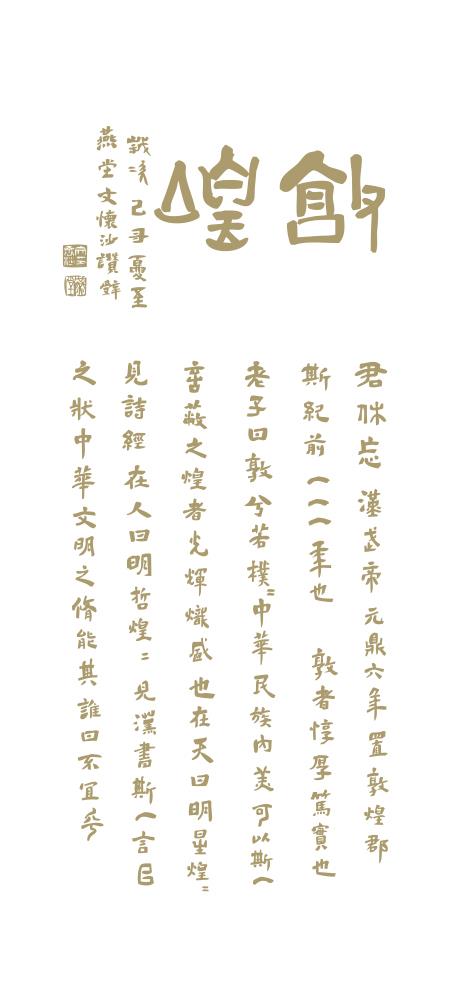 敦煌
君休忘 漢武帝元鼎六年置敦煌郡
斯紀前一一一年也 敦者惇厚篤實也
老子曰敦兮若樸〻中華民族內美可以斯一
言蔽之煌者光輝熾盛也在天曰明星煌〻
見詩經在人曰明哲煌〻見漢書斯一言已
之狀中華文明之脩能其誰曰不宜乎
歲次己丑夏至
燕堂文懷沙讚辭